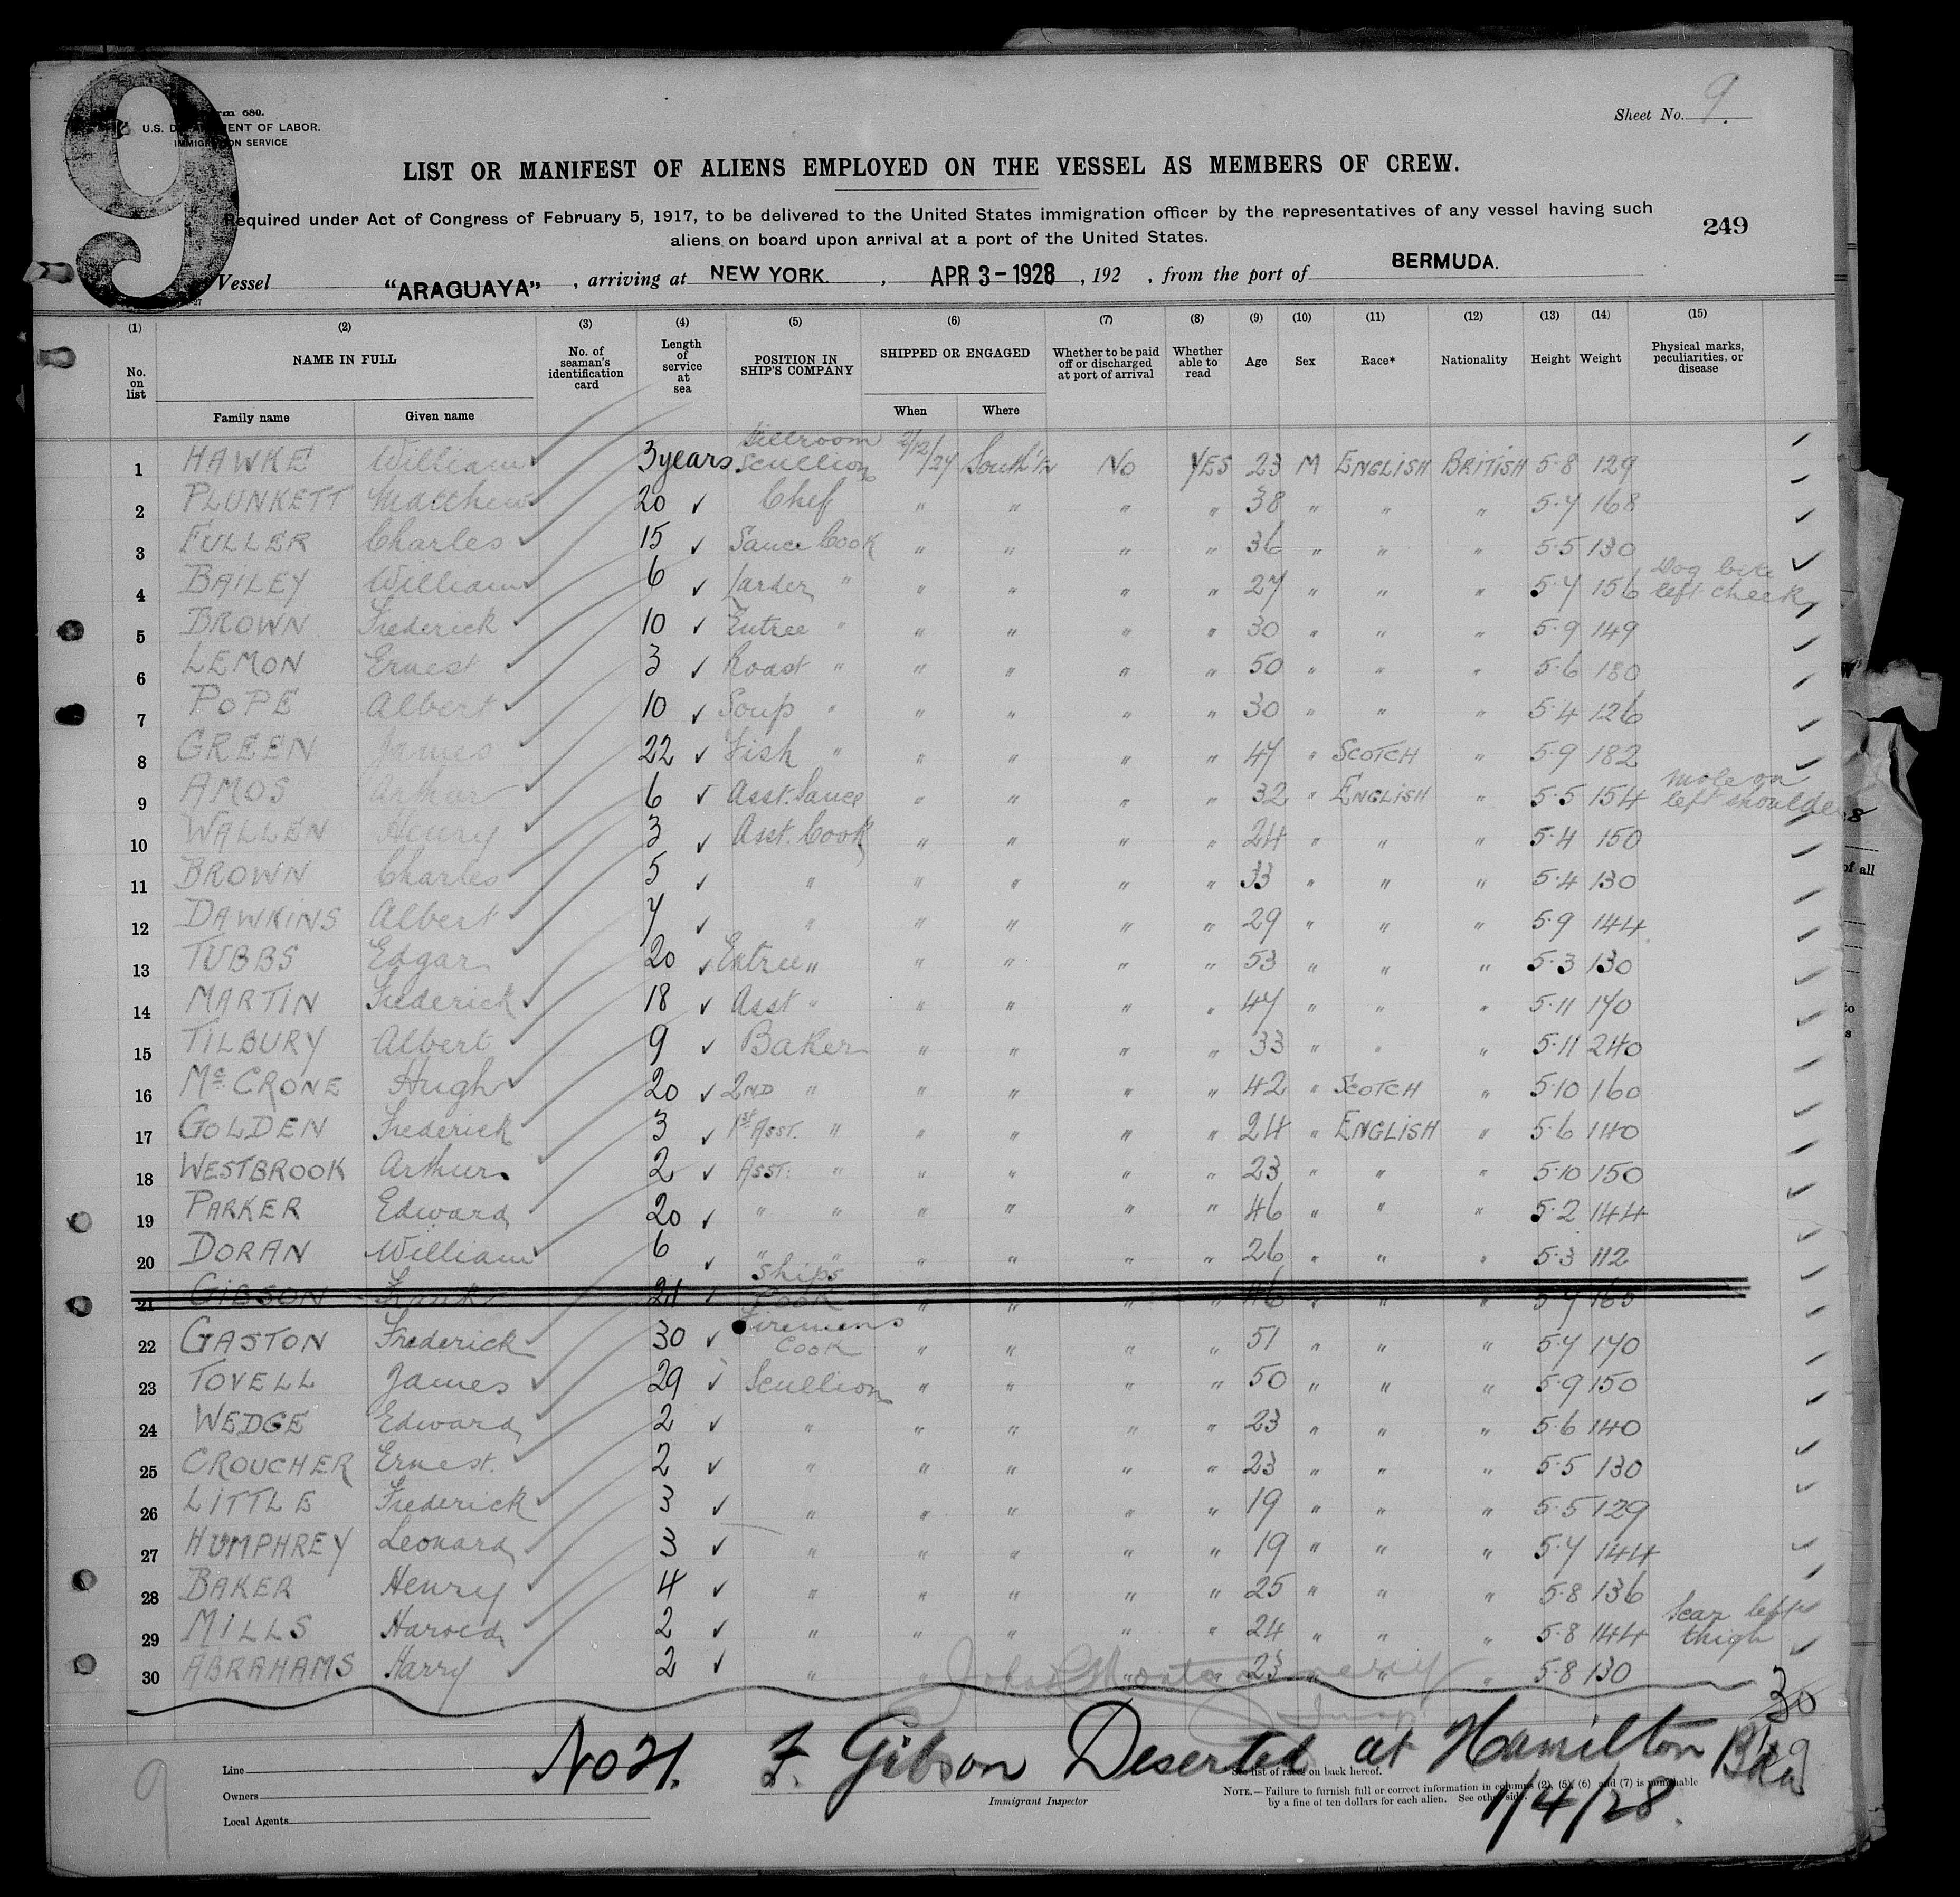 9
Form 680.
U.S. DEPARTMENT OF LABOR.
IMMIGRATION SERVICE
Sheet No. 9.
LIST OR MANIFEST OF ALIENS EMPLOYED ON THE VESSEL AS MEMBERS OF CREW.
Required under Act of Congress of February 5, 1917, to be delivered to the United States immigration officer by the representatives of any vessel having such
aliens on board upon arrival at a port of the United States.
249
Vessel "ARAGUAYA", arriving at NEW YORK., APR 3-1928, 192 , from the port of BERMUDA.
(1) (2) (3) (4) (5) (6) (7) (8) (9) (10) (11) (12) (13) (14) (15)
No. on list NAME IN FULL No. of seaman's identification card Length of service at sea POSITION IN SHIP'S COMPANY SHIPPED OR ENGAGED Whether to be paid off or discharged at port of arrival Whether able to read Age Sex Race* Nationality Height Weight Physical marks, peculiarities, or disease
Family name Given name When Where
1 HAWKE William 3 years Scullion South'n No YES 23 M ENGLISH BRITISH 5·8 129
2 PLUNKETT Matthew 20 ✓ Chef " " " " 38 " " " 5·7 168
3 FULLER Charles 15 ✓ Sauce Cook " " " " 36 " " " 5·5 130
4 BAILEY William 6 ✓ Larder " " " " " 27 " " " 5·7 156 Dog bite left cheek
5 BROWN Frederick 10 ✓ Entree " " " " " 30 " " " 5·9 149
6 LEMON Ernest 3 ✓ Roast " " " " " 50 " " " 5·6 180
7 POPE Albert 10 ✓ Soup " " " " " 30 " " " 5·4 126
8 GREEN James 22 ✓ Fish " " " " " 47 " SCOTCH " 5·9 182
9 AMOS Arthur 6 ✓ Asst. Sauce " " " " 32 " ENGLISH " 5·5 154 mole on left shoulder
10 WALLEN Henry 3 ✓ Asst. Cook " " " " 24 " " " 5·4 150
11 BROWN Charles 5 ✓ " " " " " 33 " " " 5·4 130
12 DAWKINS Albert 7 ✓ " " " " " 29 " " " 5·9 144
13 TUBBS Edgar 20 ✓ Entree " " " " " 53 " " " 5·3 130
14 MARTIN Frederick 18 ✓ Asst " " " " " 47 " " " 5·11 170
15 TILBURY Albert 9 ✓ Baker " " " " 33 " " " 5·11 240
16 McCRONE Hugh 20 ✓ 2ND " " " " " 42 " SCOTCH " 5·10 160
17 GOLDEN Frederick 3 ✓ 1st ASST. " " " " " 24 " ENGLISH " 5·6 140
18 WESTBROOK Arthur 2 ✓ ASST. " " " " " 23 " " " 5·10 150
19 PARKER Edward 20 ✓ " " " " " " 46 " " " 5·2 144
20 DORAN William 6 ✓ " " " " " " 26 " " " 5·3 112
21 GIBSON Frank 21 ✓ Ships Cook " " " " 46 " " " 5·7 165
22 GASTON Frederick 30 ✓ Firemens Cook " " " " 51 " " " 5·7 170
23 TOVELL James 29 ✓ Scullion " " " " 50 " " " 5·9 150
24 WEDGE Edward 2 ✓ " " " " " 23 " " " 5·6 140
25 CROUCHER Ernest. 2 ✓ " " " " " 23 " " " 5·5 130
26 LITTLE Frederick 3 ✓ " " " " " 19 " " " 5·5 129
27 HUMPHREY Leonard 3 ✓ " " " " " 19 " " " 5·7 144
28 BAKER Henry 4 ✓ " " " " " 25 " " " 5·8 136
29 MILLS Harold 2 ✓ " " " " " 24 " " " 5·8 144 Scar left thigh
30 ABRAHAMS Harry 2 ✓ " " " " " 23 " " " 5·8 130
30
No 21. F. Gibson Deserted at Hamilton Bda
1/4/28.
9
Line
Owners
Local Agents
Immigrant Inspector
See list of races on back hereof.
NOTE.—Failure to furnish full or correct information in columns (2), (5), (6) and (7) is punishable
by a fine of ten dollars for each alien. See other side.